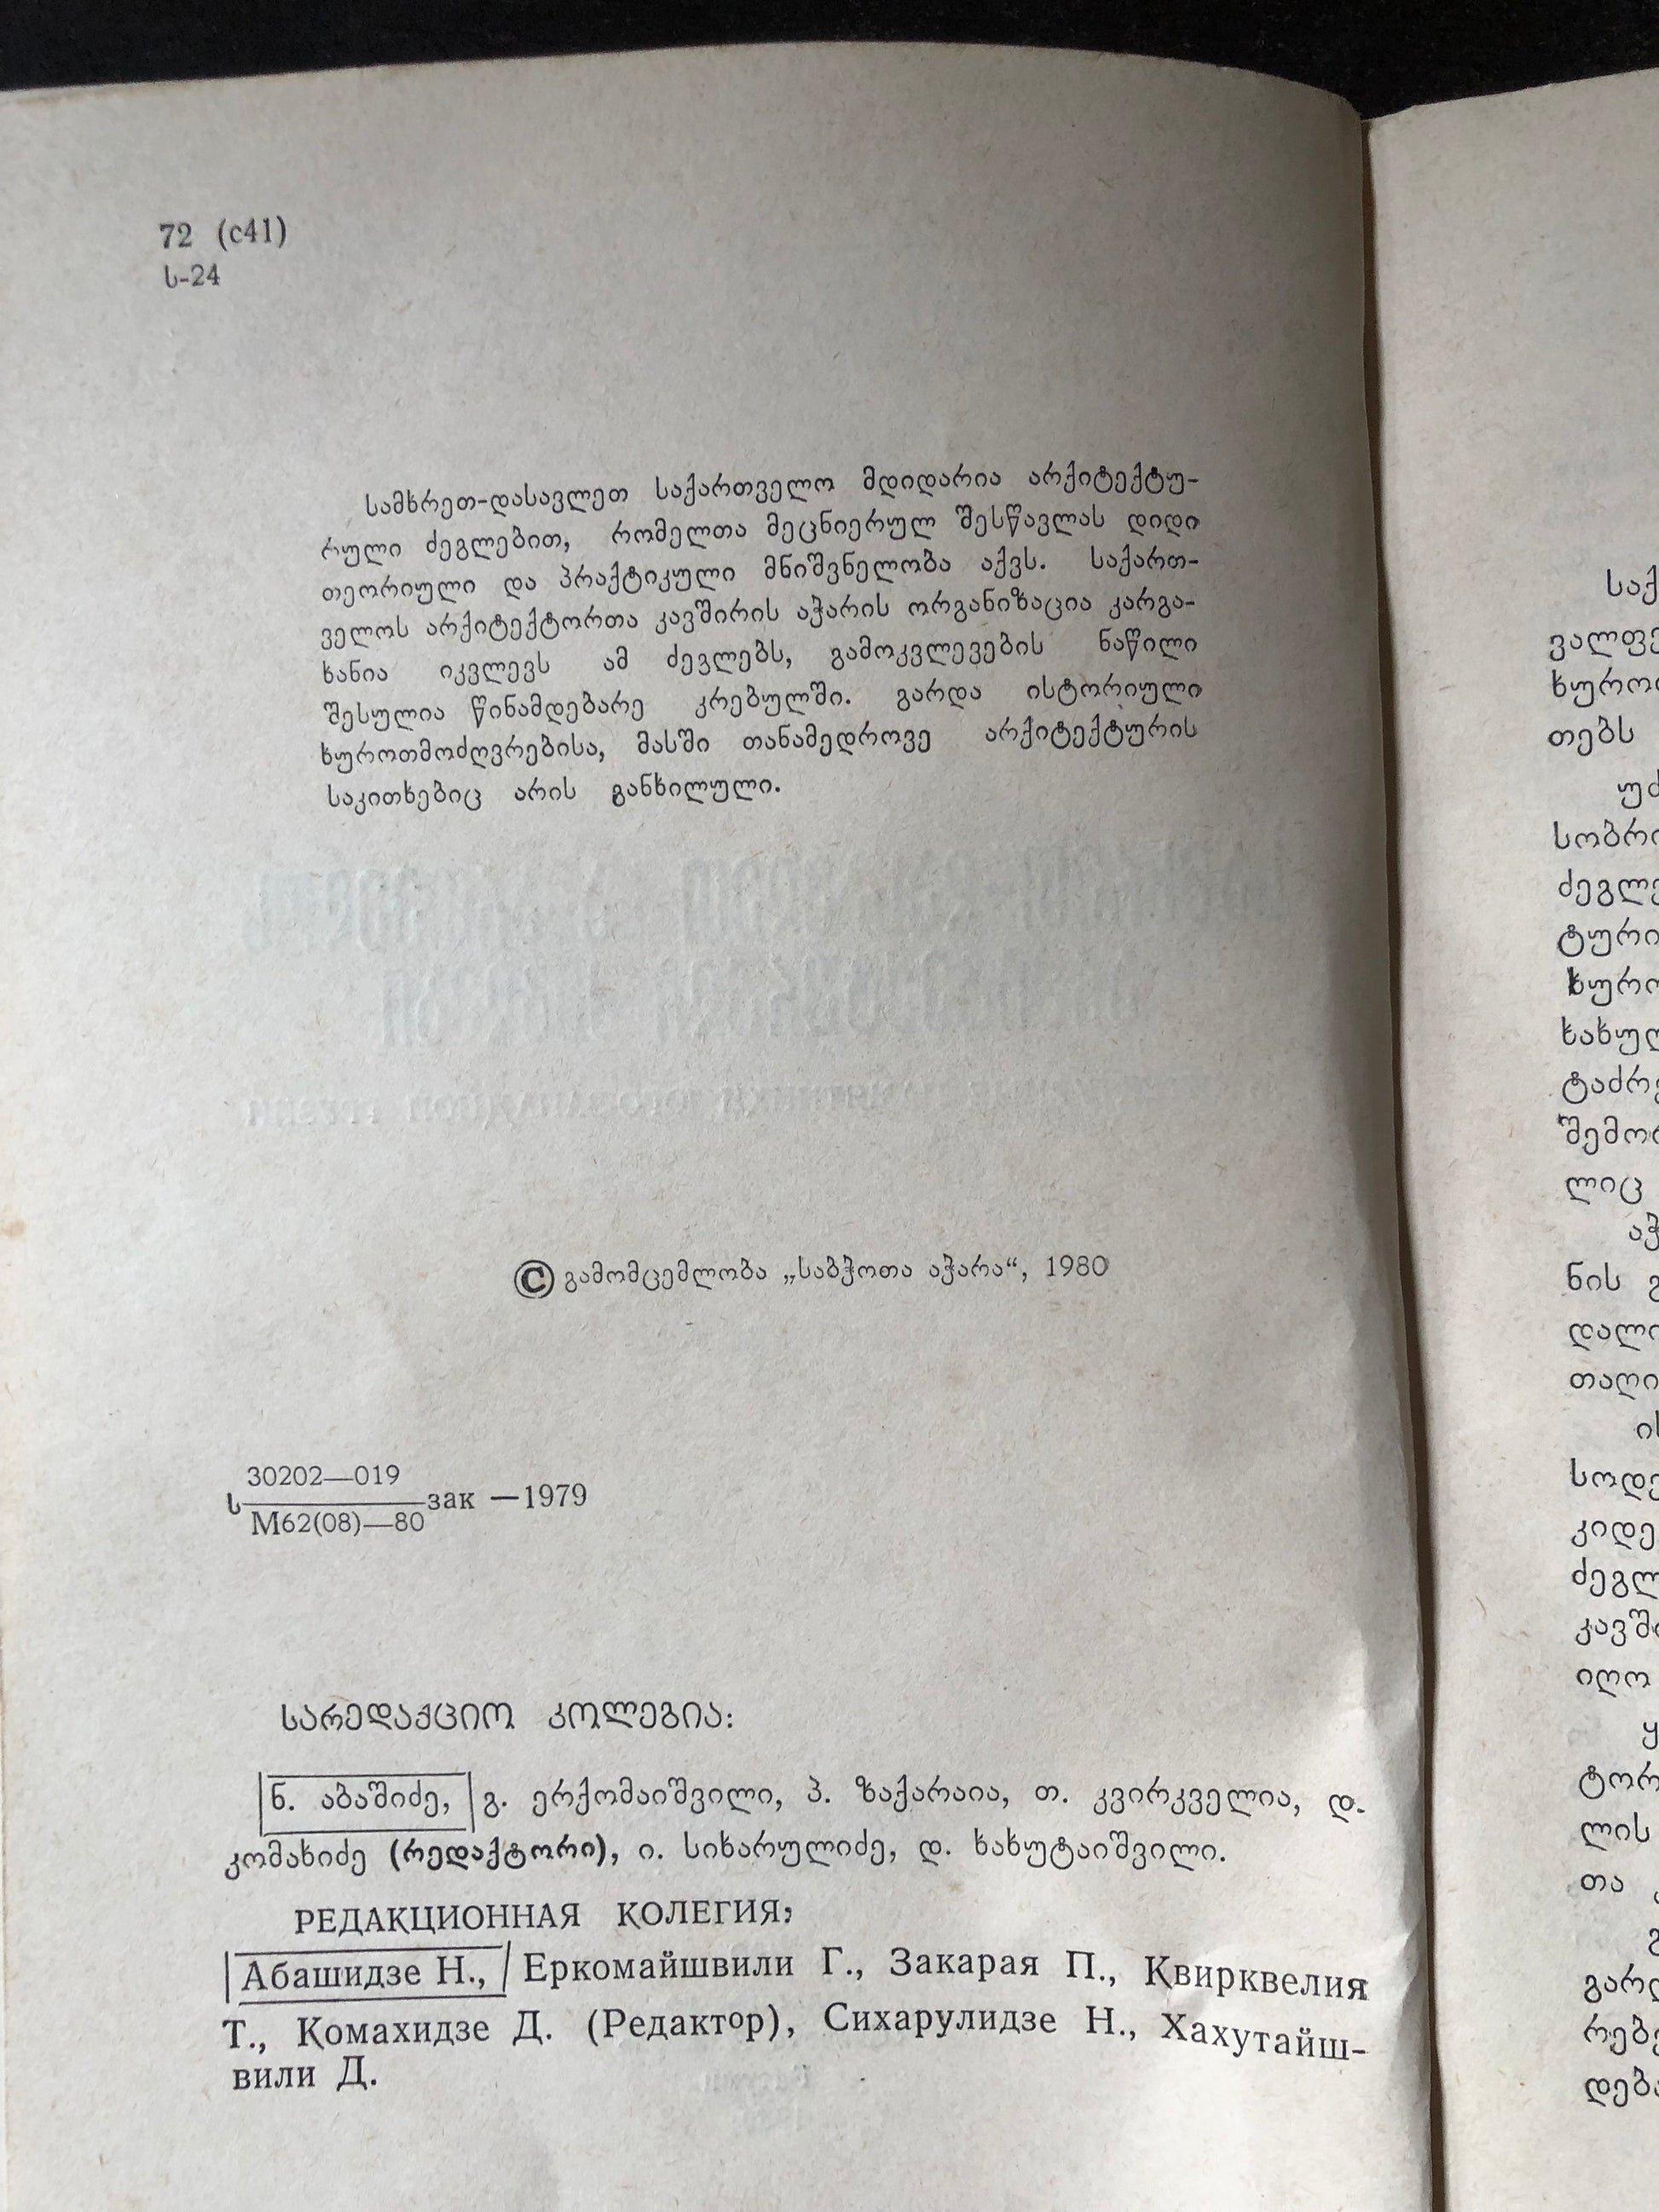 72 (с41)
ს-24
სამხრეთ-დასავლეთ საქართველო მდიდარია არქიტექტუ-
რული ძეგლებით, რომელთა მეცნიერულ შესწავლას დიდი
თეორიული და პრაქტიკული მნიშვნელობა აქვს. საქართ-
ველოს არქიტექტორთა კავშირის აჭარის ორგანიზაცია კარგა-
ხანია იკვლევს ამ ძეგლებს, გამოკვლევების ნაწილი
შესულია წინამდებარე კრებულში. გარდა ისტორიული
ხუროთმოძღვრებისა, მასში თანამედროვე არქიტექტურის
საკითხებიც არის განხილული.
© გამომცემლობა „საბჭოთა აჭარა“, 1980
30202—019
ს зак —1979
М62(08)—80
ᲡᲐᲠᲔᲓᲐᲥᲪᲘᲝ ᲙᲝᲚᲔᲒᲘᲐ:
ნ. აბაშიძე, გ. ერქომაიშვილი, პ. ზაქარაია, თ. კვირკველია, დ.
კომახიძე (რედაქტორი), ი. სიხარულიძე, დ. ხახუტაიშვილი.
РЕДАКЦИОННАЯ КОЛЕГИЯ:
Абашидзе Н., Еркомайшвили Г., Закарая П., Квирквелия
Т., Комахидзе Д. (Редактор), Сихарулидзе Н., Хахутайш-
вили Д.
საქ
ვალფე
ხურო
თებს
უძ
სობრი
ძეგლე
ტური
ხურო
ხახულ
ტაძრე
შემო
ლიც
აჭ
ნის გ
დალი
თაღი
ის
სოდე
კიდე
ძეგლ
კავში
იღო
ყ
ტორ
ლის
თა
გ
გარდ
რებე
დება